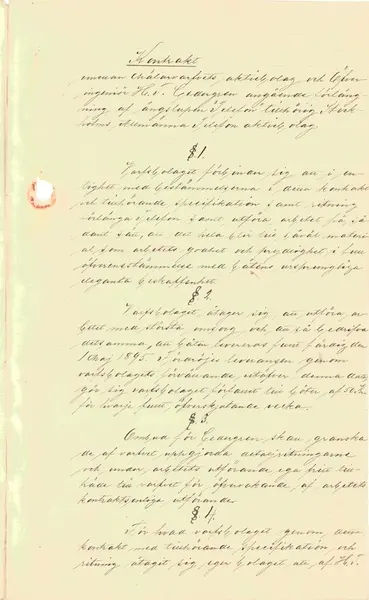 Kontrakt
emellan Mälarvarfvets aktiebolag och Öfver
ingeniör H. T. Cedergren angående förläng
ning af ångslupen "Telefon" tillhörig Stock
holms Allmänna Telefon aktiebolag.
§ 1.
Varfsbolaget förbinder sig att i en
lighet med bestämmelserna i detta kontrakt
och tillhörande specifikation samt ritning
förlänga Telefon samt utföra arbetet på så
dant sätt, att det hela blir till såväl materi
al som arbetets godhet och prydlighet i full
öfverensstämmelse med båtens ursprungliga
eleganta beskaffenhet.
§ 2.
Varfsbolaget åtager sig att utföra ar
betet med största omsorg och att så bedrifva
detsamma, att båten levereras fullt färdig den
1 Maj 1895. Fördröjes leveransen genom
varfsbolagets förvållande utöfver denna dag
gör sig varfsbolaget förfallet till böter af
för hvarje fullt öfverskjutande vecka.
§ 3.
Ombud för Cedergren skall granska
de af varfvet uppgjorda detaljritningarne
och under arbetets utförande ega fritt till
träde till varfvet för öfvervakande af arbetets
kontraktsenliga utförande.
§ 4.
För hvad varfsbolaget genom detta
kontrakt med tillhörande specifikation och
ritning åtagit sig, eger bolaget att af H. T.